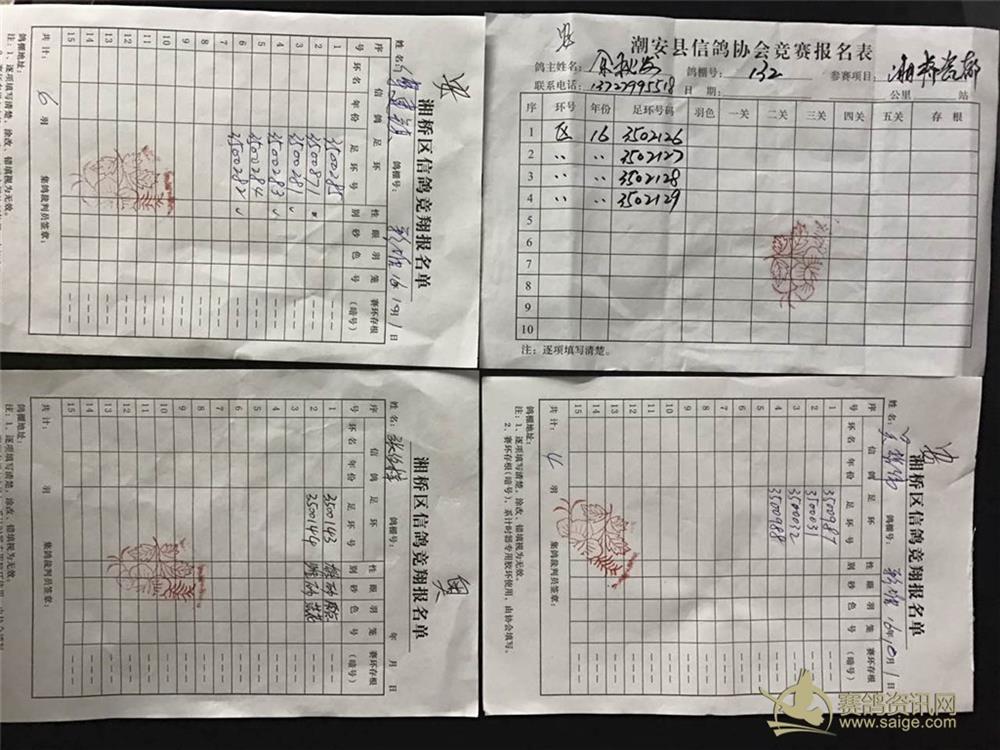 湘桥区信鸽竞翔报名单
姓名:
鸽棚号:
16年10月1日
序号 信鸽足环 性别 眼砂 羽色 笼号 赛环存根(暗号)
环名 年份 足环号
1 3500285
2 3500871
3 3500281
4 3500283
5 3500284
6 3500287
7
8
9
10
11
12
13
14
15
共计: 6 羽 集鸽裁判员签章:
鸽棚地址:
注:1、逐项填写清楚,涂改、错填视为无效。
潮安县信鸽协会竞赛报名表
鸽主姓名: 鸽棚号: 132 参赛项目: 湘桥瓷都
联系电话: 13727995518 日期: 公里 站
序 环号 年份 足环号码 羽色 一关 二关 三关 四关 五关 存根
1 区 16 3502126
2 〃 〃 3502127
3 〃 〃 3502128
4 〃 〃 3502129
5
6
7
8
9
10
注:逐项填写清楚。
湘桥区信鸽竞翔报名单
姓名:
鸽棚号:
年 月 日
序号 信鸽足环 性别 眼砂 羽色 笼号 赛环存根(暗号)
环名 年份 足环号
1 3500143 雄 砂
2 3500144 雌 砂
3
4
5
6
7
8
9
10
11
12
13
14
15
共计: 羽 集鸽裁判员签章:
鸽棚地址:
注:1、逐项填写清楚,涂改、错填视为无效。
湘桥区信鸽竞翔报名单
姓名:
鸽棚号:
16年10月1日
序号 信鸽足环 性别 眼砂 羽色 笼号 赛环存根(暗号)
环名 年份 足环号
1 3500987
2 3500031
3 3500032
4 3500988
5
6
7
8
9
10
11
12
13
14
15
共计: 4 羽 集鸽裁判员签章:
鸽棚地址:
注:1、逐项填写清楚,涂改、错填视为无效。
2、赛环存根(暗号),系计时器专用胶环使用,由协会填写。
赛鸽资讯网
www.saige.com